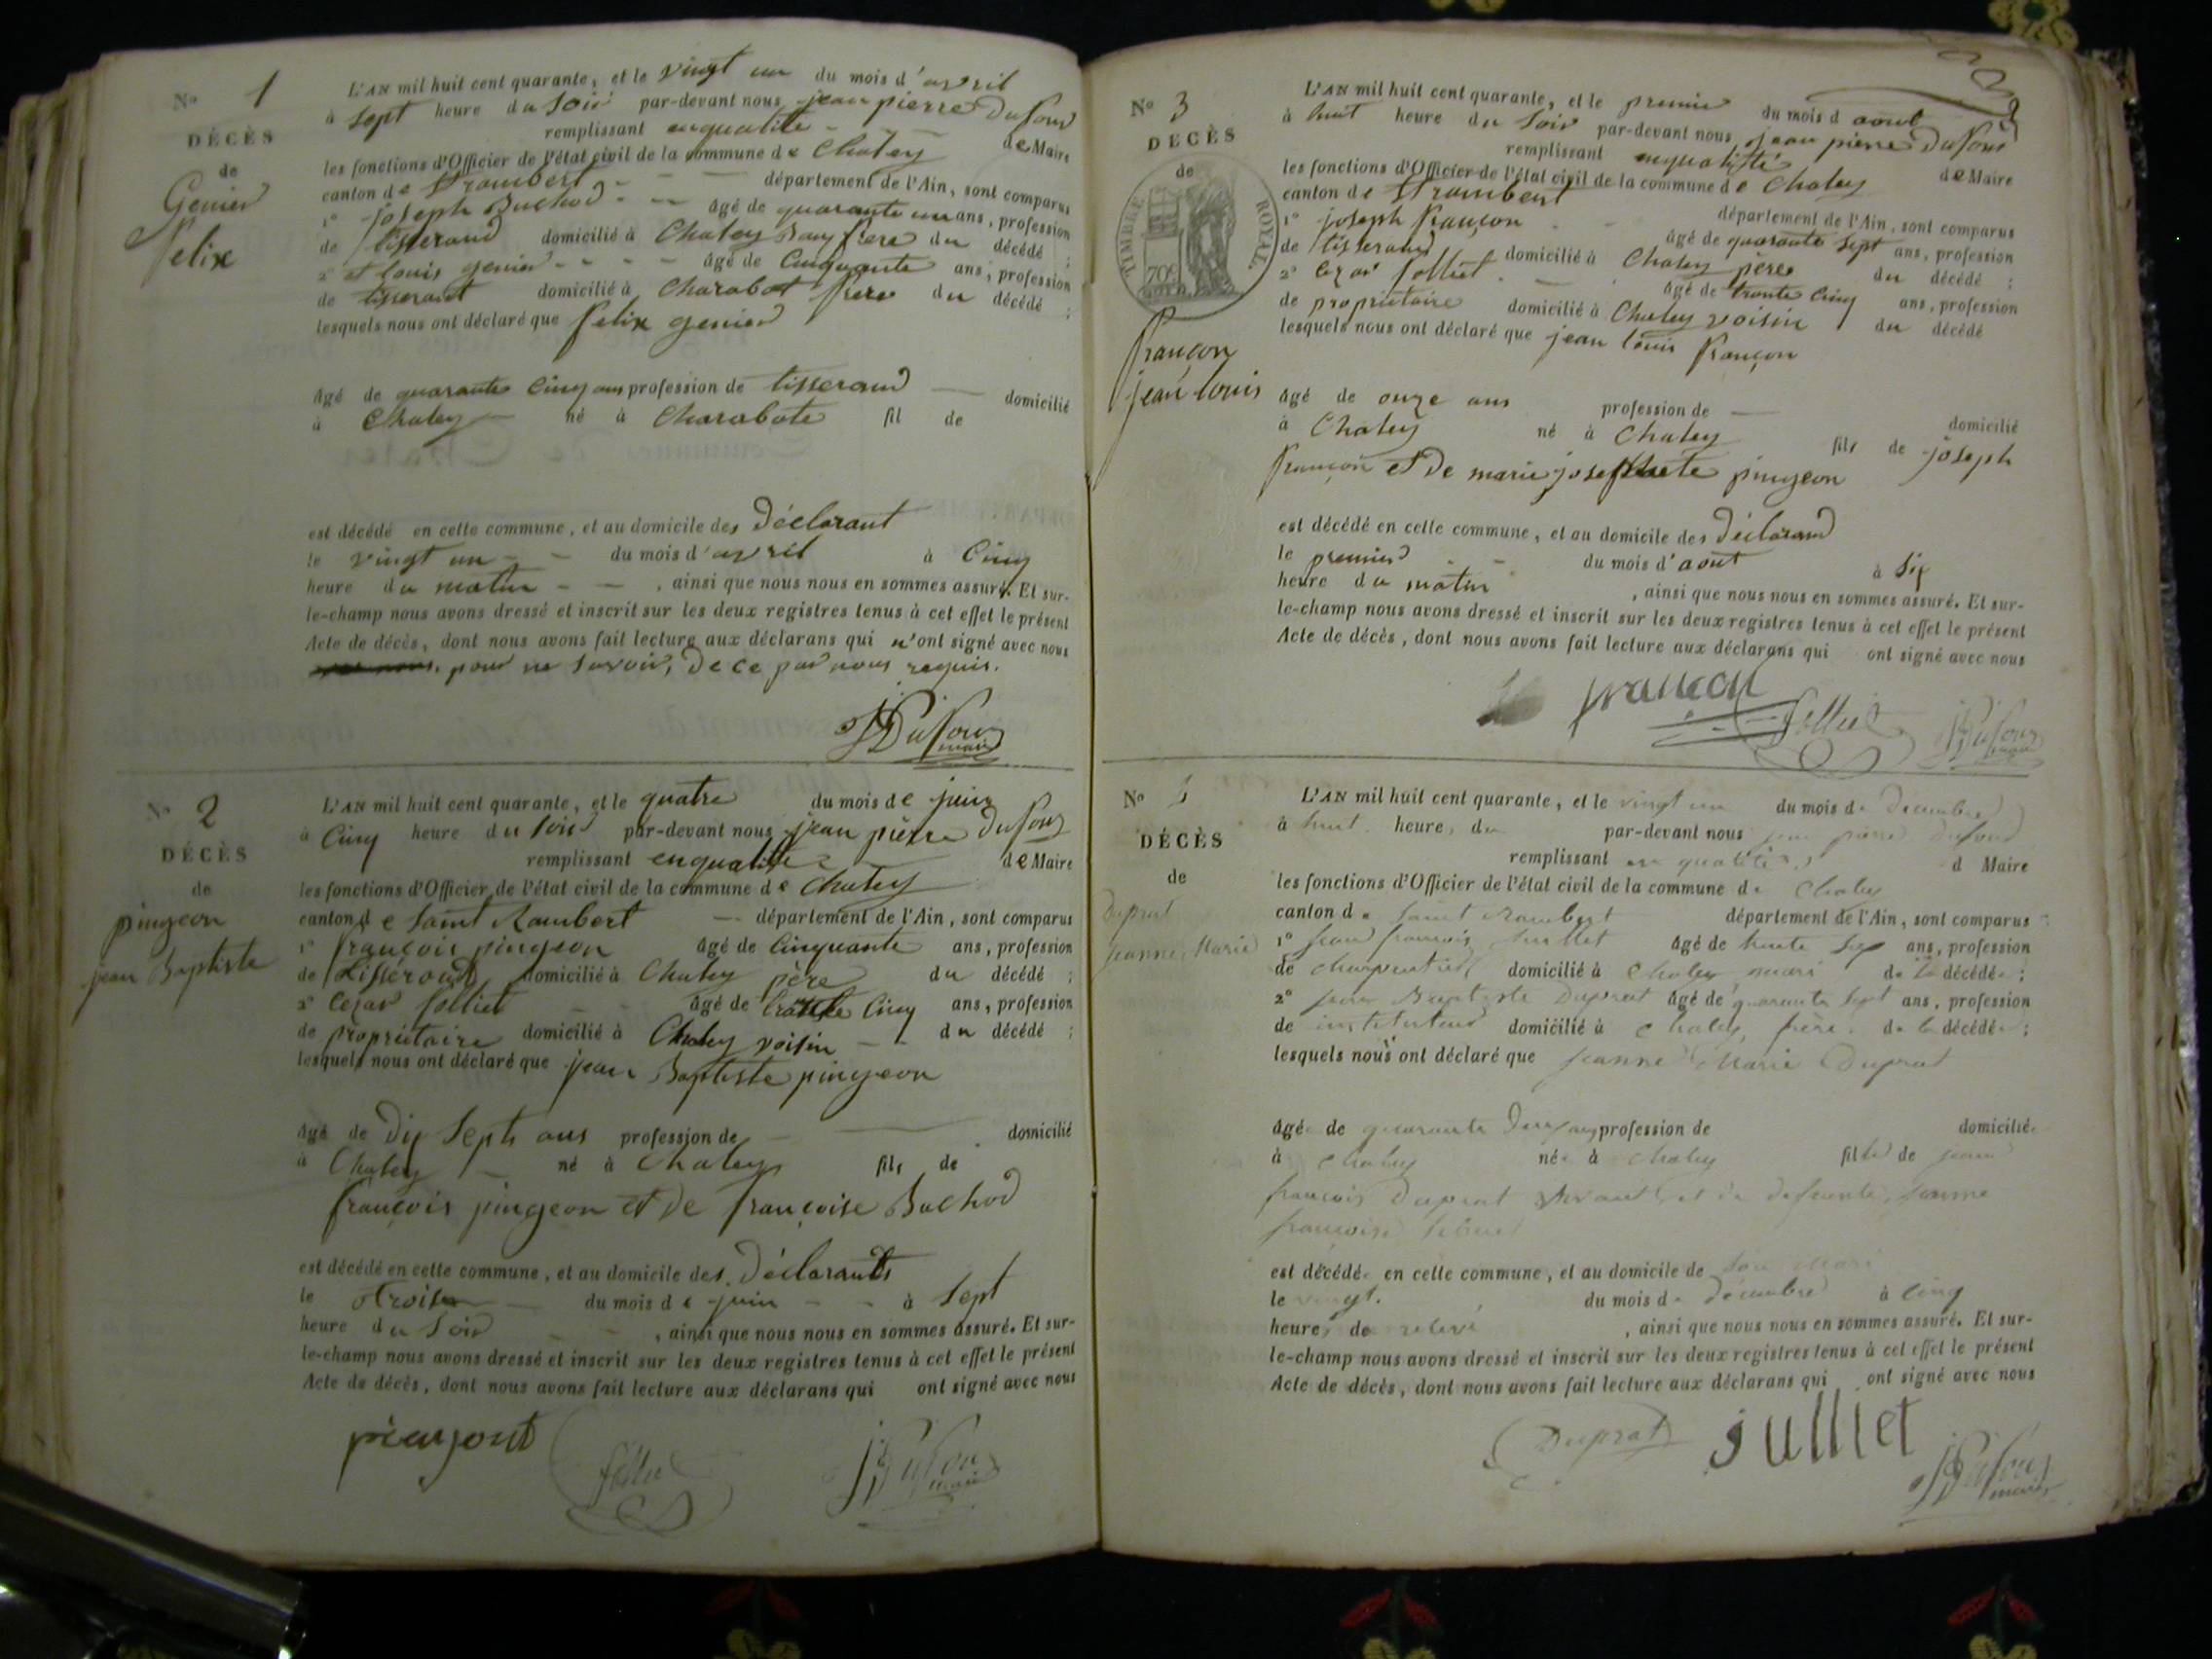 No 1
DÉCÈS
de
Genier
Felix
L'AN mil huit cent quarante, et le vingt un du mois d'avril
à sept heure du soir par-devant nous jean pierre Dufour
remplissant enqualité de Maire
les fonctions d'Officier de l'état civil de la commune de Chaley
canton de St rambert département de l'Ain, sont comparus
1° joseph Buchod âgé de quarante un ans, profession
de tisserand domicilié à Chaley Bau frere du décédé ;
2° et louis genier âgé de Cinquante ans, profession
de tisserant domicilié à Charabot frere du décédé ;
lesquels nous ont déclaré que felix genier
âgé de quarante Cinq ans profession de tisserand domicilié
à Chaley né à Charabote fil de
est décédé en cette commune, et au domicile des Déclarant
le vingt un du mois d'avril à Cinq
heure du matin , ainsi que nous nous en sommes assuré. Et sur-
le-champ nous avons dressé et inscrit sur les deux registres tenus à cet effet le présent
Acte de décès, dont nous avons fait lecture aux déclarans qui n'ont signé avec nous
pour ne savoir, de ce par nous requis.
JPDufour
maire
No 2
DÉCÈS
de
pingeon
jean Baptiste
L'AN mil huit cent quarante, et le quatre du mois de juin
à Cinq heure du soir par-devant nous jean pierre Dufour
remplissant enqualité de Maire
les fonctions d'Officier de l'état civil de la commune de Chaley
canton de Saint Rambert département de l'Ain, sont comparus
1° françois pingeon âgé de Cinquante ans, profession
de tisserand domicilié à Chaley père du décédé ;
2° Cezar folliet âgé de trante Cinq ans, profession
de propriétaire domicilié à Chaley voisin du décédé ;
lesquels nous ont déclaré que jean Baptiste pingeon
âgé de Dix Septs ans profession de domicilié
à Chaley né à Chaley fils de
françois pingeon et de françoise Buchod
est décédé en cette commune, et au domicile des Déclarants
le trois du mois de juin à sept
heure du soir , ainsi que nous nous en sommes assuré. Et sur-
le-champ nous avons dressé et inscrit sur les deux registres tenus à cet effet le présent
Acte de décès, dont nous avons fait lecture aux déclarans qui ont signé avec nous
folliet JPDufour
maire
No 3
DÉCÈS
de
TIMBRE ROYAL.
70c
françon
jean louis
L'AN mil huit cent quarante, et le premier du mois d aout
à huit heure du soir par-devant nous jean pierre Dufour
remplissant enqualité de Maire
les fonctions d'Officier de l'état civil de la commune de Chaley
canton de St rambert département de l'Ain, sont comparus
1° joseph françon âgé de quarante sept ans, profession
de tisserand domicilié à Chaley père du décédé ;
2° Cezar folliet âgé de trente Cinq ans, profession
de propriétaire domicilié à Chaley voisin du décédé
lesquels nous ont déclaré que jean louis françon
âgé de onze ans profession de domicilié
à Chaley né à Chaley fils de joseph
françon et de marie josephete pingeon
est décédé en cette commune, et au domicile des Déclarand
le premier du mois d'aout à six
heure du matin , ainsi que nous nous en sommes assuré. Et sur-
le-champ nous avons dressé et inscrit sur les deux registres tenus à cet effet le présent
Acte de décès, dont nous avons fait lecture aux déclarans qui ont signé avec nous
francon folliet JPDufour
maire
No
DÉCÈS
de
Duprat
Jeanne Marie
L'AN mil huit cent quarante, et le vingt un du mois de Decembre
à huit heure, du par-devant nous jean pierre Dufour
remplissant en qualité d Maire
les fonctions d'Officier de l'état civil de la commune de Chaley
canton de Saint Rambert département de l'Ain, sont comparus
1° Jean françois Julliet âgé de trente six ans, profession
de charpentier domicilié à Chaley mari de la décédée ;
2° jean Baptiste Duprat âgé de quarante sept ans, profession
de instituteur domicilié à Chaley, frère de la décédée ;
lesquels nous ont déclaré que Jeanne Marie Duprat
âgée de quarante Deux ans profession de domiciliée
à Chaley née à Chaley fille de jean
françois Duprat vivant et de defunte
françoise
est décédée en cette commune, et au domicile de son Mari
le vingt. du mois de Décembre à cinq
heures de relevé , ainsi que nous nous en sommes assuré. Et sur-
le-champ nous avons dressé et inscrit sur les deux registres tenus à cet effet le présent
Acte de décès, dont nous avons fait lecture aux déclarans qui ont signé avec nous
Duprat julliet JPDufour
maire